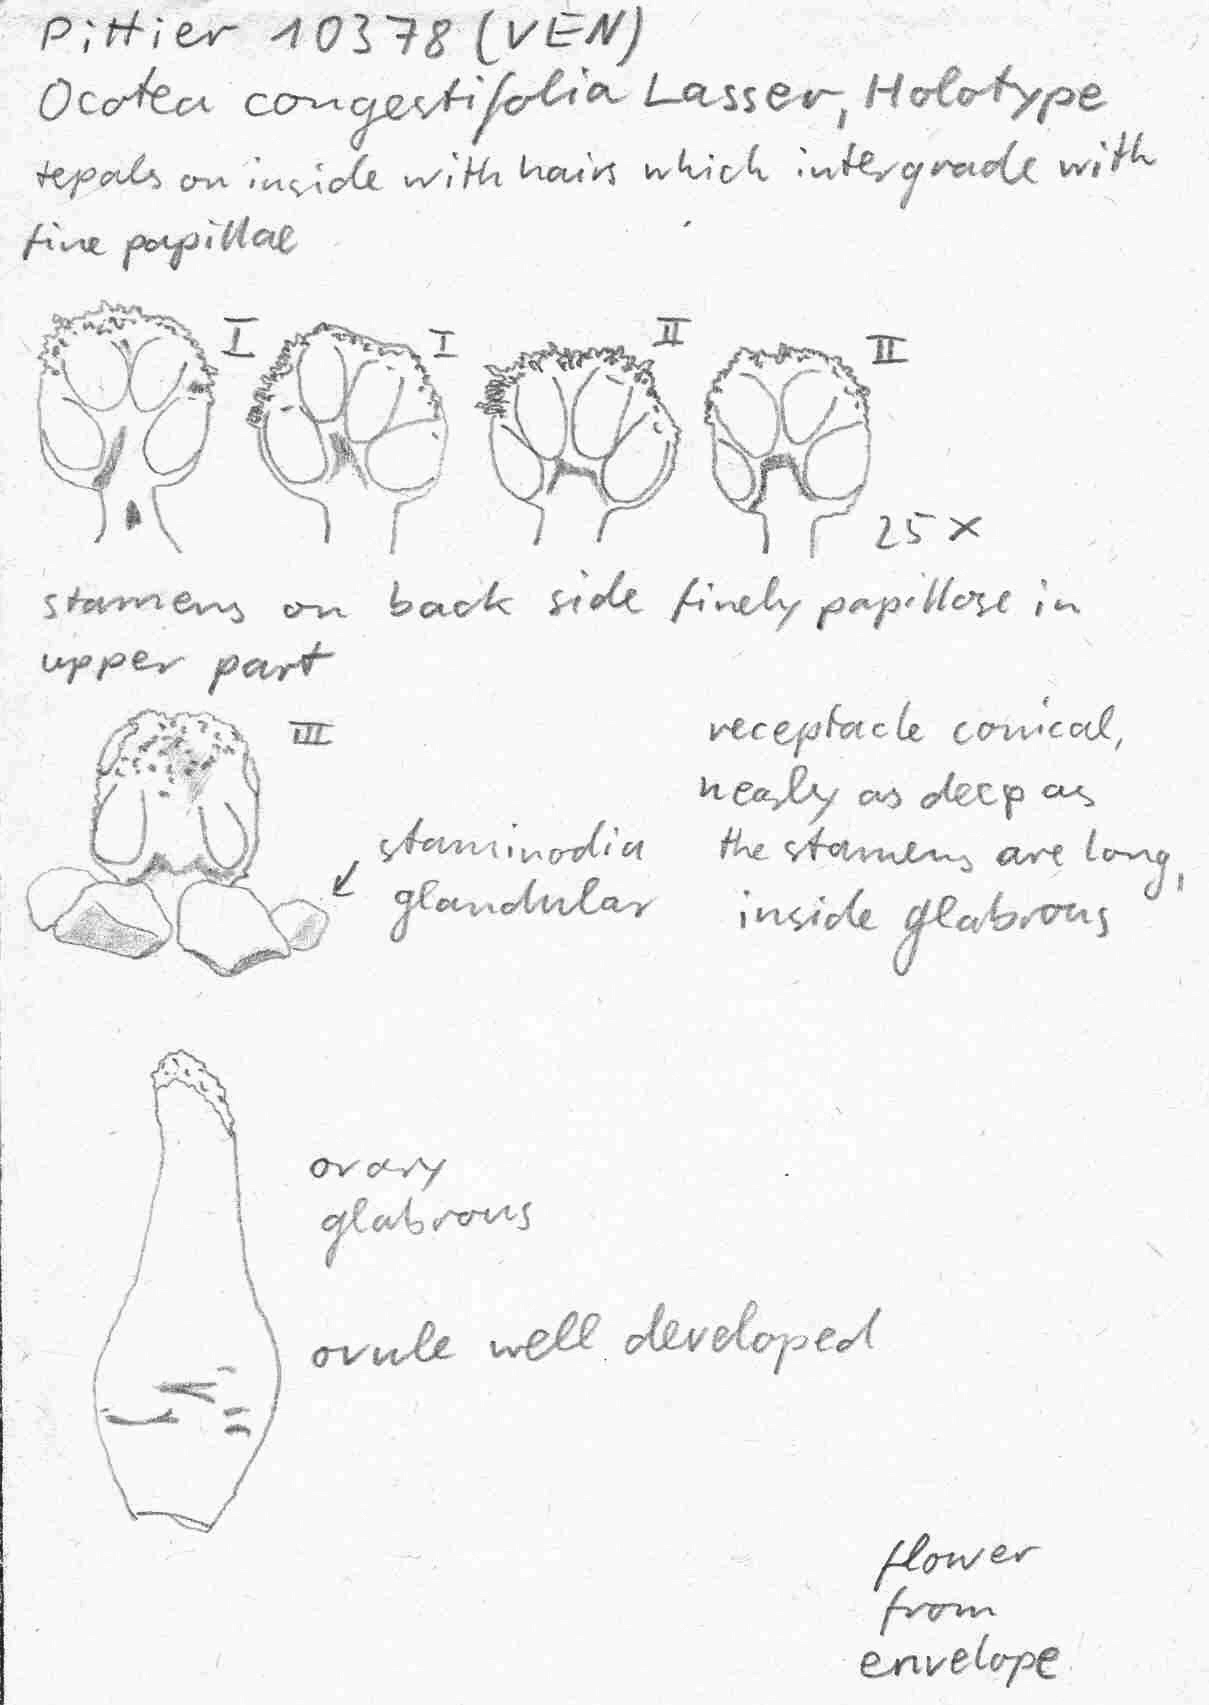 Pittier 10378 (VEN)
Ocotea congestifolia Lasser, Holotype
tepals on inside with hairs which intergrade with
fine papillae
I
I
II
II
25 x
stamens on back side finely papillose in
upper part
III
receptacle conical,
nearly as deep as
the stamens are long,
inside glabrous
staminodia
glandular
ovary
glabrous
ovule well developed
flower
from
envelope